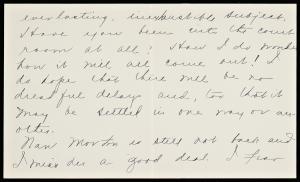 everlasting, inexhaustible subject.
Have you been into the court
room at all? How I do wonder
how it will all come out! I
do hope that there will be no
dreadful delays and, too, that it
may be settled in one way or an-
other.
Nan Morton is still not back and
I miss her a good deal. I fear